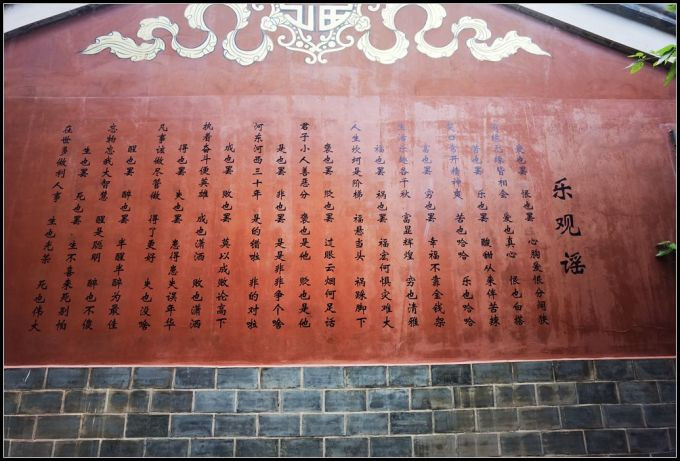 福
乐观谣
爱也罢 恨也罢 心胸爱恨分阔狭
有缘无缘皆相会 爱也真心 恨也白搭
苦也罢 乐也罢 酸甜从来伴苦辣
笑口常开精神爽 苦也哈哈 乐也哈哈
富也罢 穷也罢 幸福不靠金钱架
生活乐趣各千秋 富显辉煌 穷也清雅
福也罢 祸也罢 福宏何惧灾难大
人生坎坷是阶梯 福悬当头 祸踩脚下
褒也罢 贬也罢 过眼云烟何足话
君子小人善恶分 褒也是他 贬也是他
是也罢 非也罢 是是非非争个啥
河东河西三十年 是的错啦 非的对啦
成也罢 败也罢 莫以成败论高下
执着奋斗便英雄 成也潇洒 败也潇洒
得也罢 失也罢 患得患失误年华
凡事该做尽管做 得了更好 失也没啥
醒也罢 醉也罢 半醒半醉为最佳
忘物忘我大智慧 醒是聪明 醉也不傻
生也罢 死也罢 生不喜来死别怕
在世多做利人事 生也光荣 死也伟大